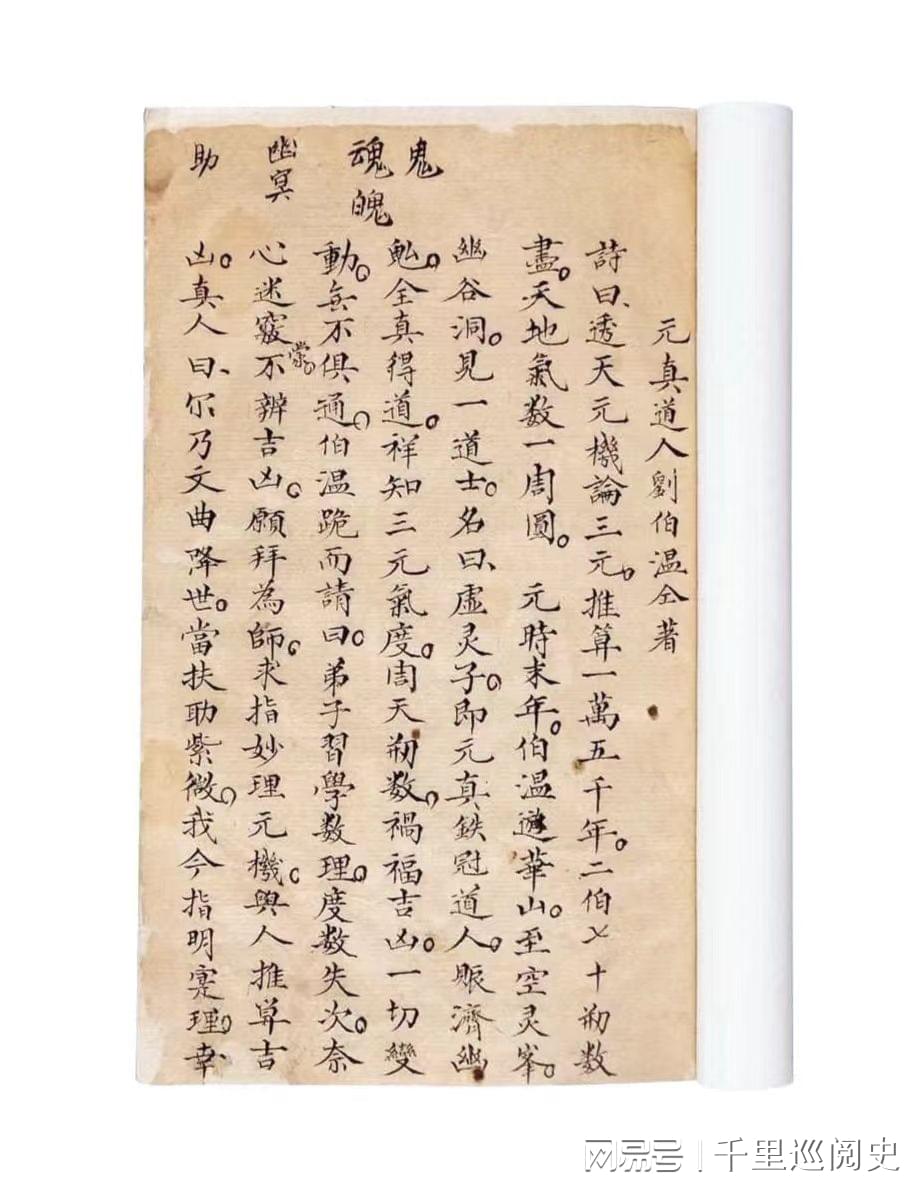 鬼
魂魄
幽冥
助
元真道人劉伯温仝著
詩曰、透天元機論三元。推算一萬五千年。二伯七十劫数
盡。天地氣数一周圓。 元時末年。伯温遊華山。至空灵峯。
幽谷洞。見一道士。名曰、虚灵子。即元真鉄冠道人。賑濟幽
鬼。全真得道。祥知三元氣度。周天劫数。禍福吉凶。一切變
動。無不俱通。伯温跪而請曰。弟子習學数理。度数失次。奈
心迷竅不辨吉凶。願拜為師。求指妙理元機。與人推算吉
凶。真人曰、尔乃文曲降世。當扶助紫微。我今指明寔理。幸
网易号 | 千里巡阅史